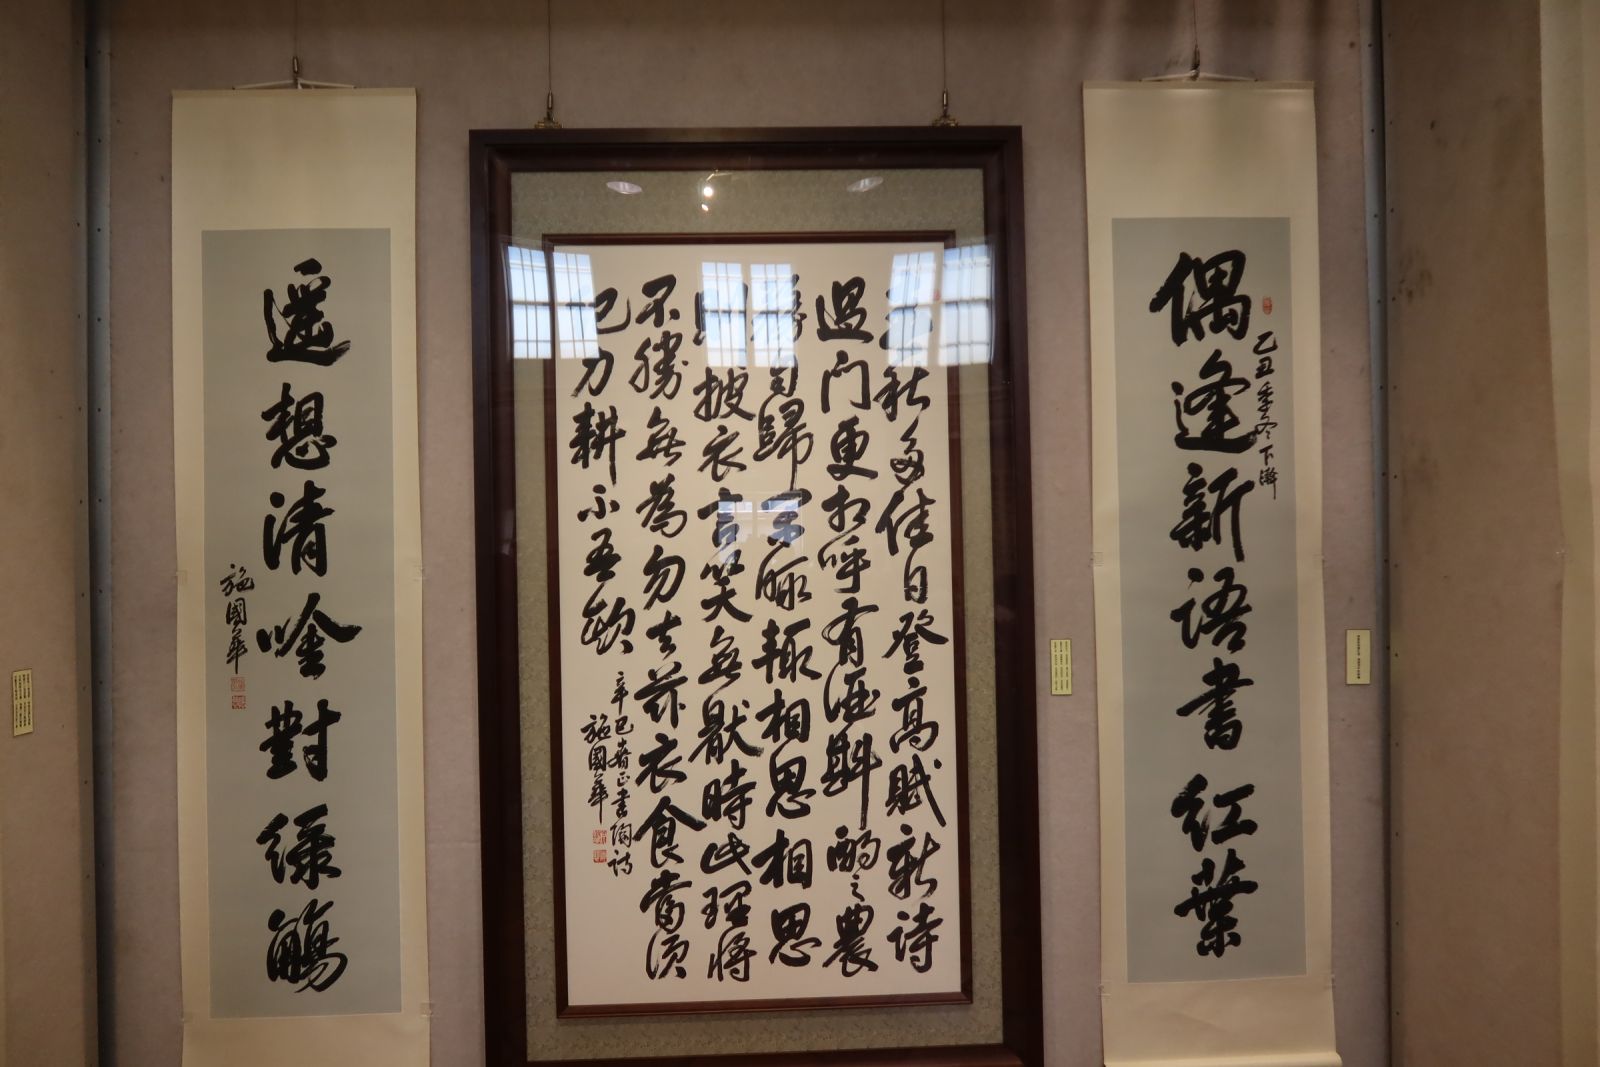 偶逢新語書紅葉
乙丑季冬下澣
春秋多佳日登高賦新詩
過門更相呼有酒斟酌之農
務自歸閒暇輒相思相思
則披衣言笑無厭時此理將
不勝無為勿去茲衣食當須
己力耕不吾欺
辛巳春正書陶詩
施國華
遙想清唫對綠觴
施國華